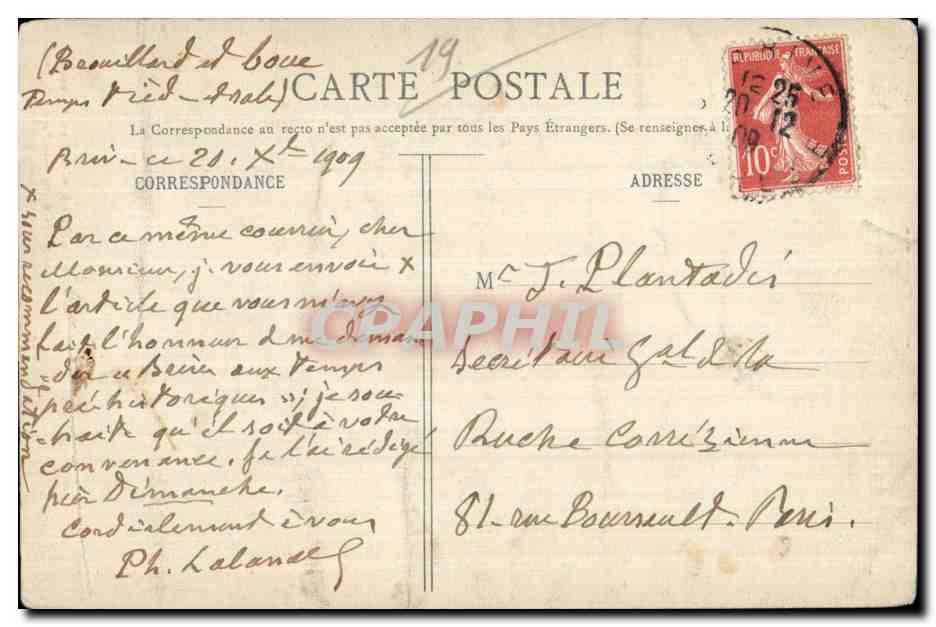 (Brouillard et boue
Temps
19
CARTE POSTALE
La Correspondance au recto n'est pas acceptée par tous les Pays Étrangers. (Se renseigner à la
Brive ce 20. Xbre 1909
CORRESPONDANCE
ADRESSE
REPUBLIQUE FRANCAISE
10c
POSTES
12 25
20 12
09
Par ce même courrier, cher
Monsieur, je vous envoie x
l'article que vous m'avez
fait l'honneur d me deman-
-der « Brive aux temps
préhistoriques »; je sou-
-haite qu'il soit à votre
convenance. Je l'ai rédigé
hier Dimanche.
Cordialement à vous
Ph. Lalande
x sous recommandation
Mr J. Plantadis
Secrétaire Gal de la
Ruche Corrézienne
81. rue Boursault. Paris.
CPAPHIL